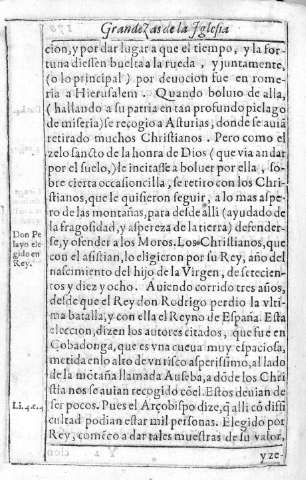 Grandezas de la Iglesia
cion, y por dar lugar a que el tiempo, y la for-
tuna diessen buelta a la rueda, y juntamente,
(o lo principal) por deuocion fue en rome-
ria a Hierusalem. Quando boluio de alla,
(hallando a su patria en tan profundo pielago
de miseria) se recogio a Asturias, donde se auiã
retirado muchos Christianos. Pero como el
zelo sancto de la honra de Dios (que via andar
por el suelo,) le incitasse a boluer por ella, so-
bre cierta occasioncilla, se retiro con los Chri-
stianos, que le quisieron seguir, a lo mas aspe-
ro de las montañas, para desde alli (ayudado de
la fragosidad, y aspereza de la tierra) defender-
se, y ofender a los Moros. Los Christianos, que
con el asistian, lo eligieron por su Rey, año del
nascimiento del hijo de la Virgen, de setecien-
tos y diez y ocho. Auiendo corrido tres años,
desde que el Rey don Rodrigo perdio la vlti-
ma batalla, y con ella el Reyno de España. Esta
eleccion, dizen los autores citados, que fue en
Cobadonga, que es vna cueua muy espaciosa,
metida en lo alto de vn risco asperissimo, al lado
de la mõtaña llamada Auseba, a dõde los Chri
stianos se auian recogido cõ el. Estos deuian de
ser pocos. Pues el Arçobispo dize, q̃ alli cõ diffi
cultad podian estar mil personas. Elegido por
Rey, comẽço a dar tales muestras de su valor,
y ze-
Don Pe
layo ele
gido en
Rey.
Li. 4. c. 2